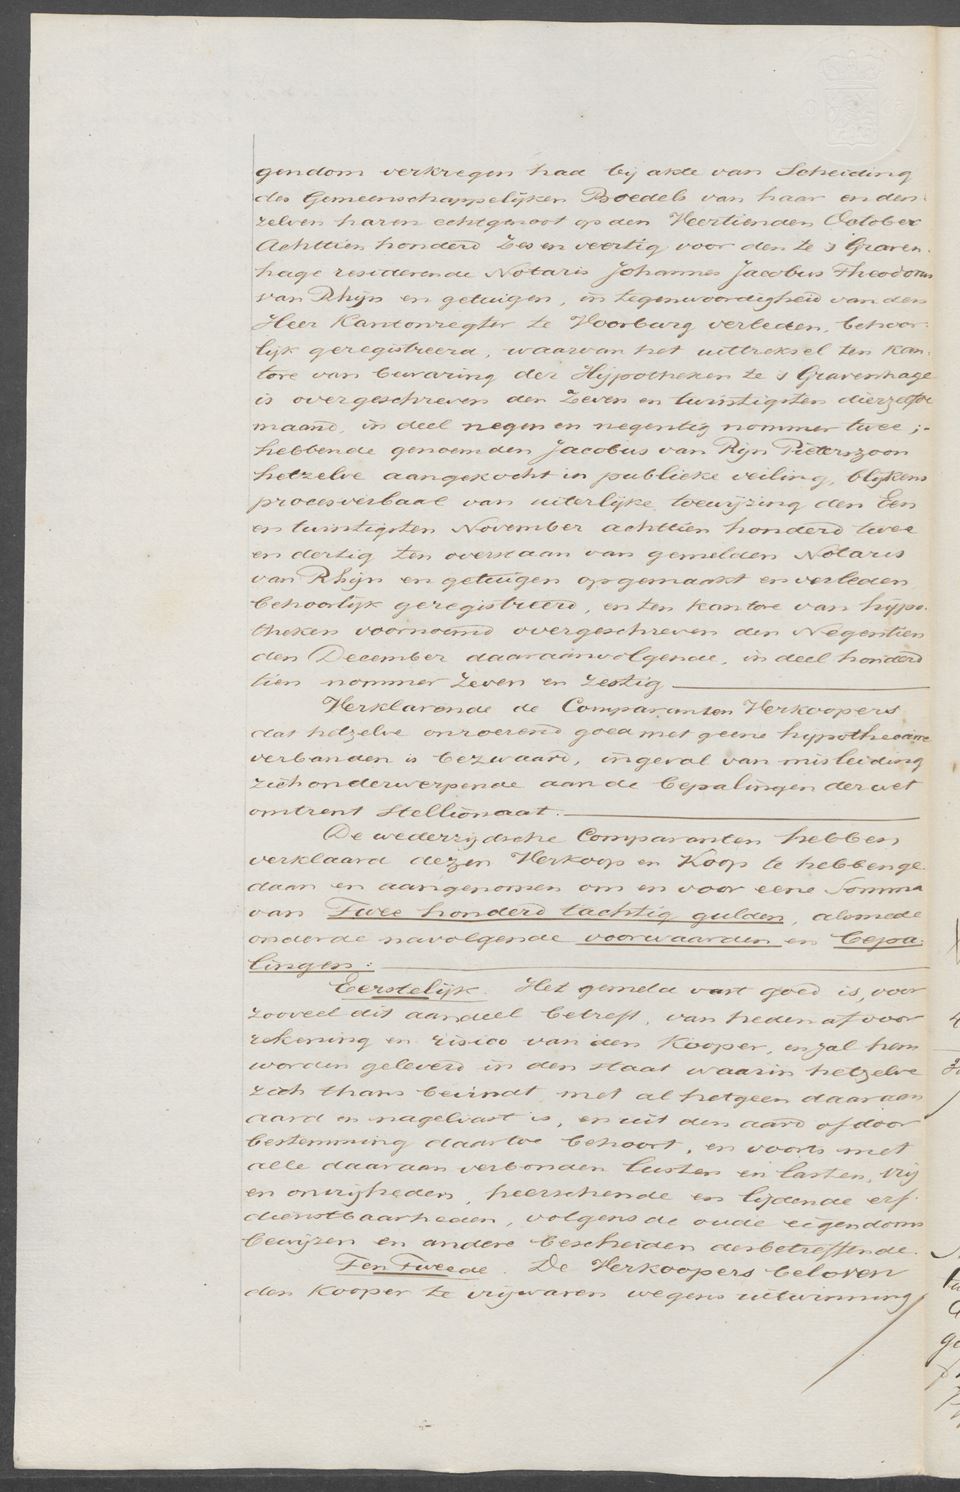 gendom verkregen had bij akte van Scheiding
des Gemeenschappelijken Boedels van haar en den-
zelven haren echtgenoot op den Veertienden October
Achttien honderd Zes en veertig voor den te s Graven-
hage residerende Notaris Johannes Jacobus Theodorus
van Rhijn en getuigen, in tegenwoordigheid van den
Heer Kantonregter te Voorburg verleden, behoor-
lijk geregistreerd, waarvan het uittreksel ten kan-
tore van bewaring der Hijpotheken te s Gravenhage
is overgeschreven den Zeven en twintigsten dierzelfde
maand, in deel negen en negentig nommer twee;-
hebbende genoemden Jacobus van Rijn Pieterszoon
hetzelve aangekocht in publieke veiling, blijkens
procesverbaal van uiterlijke toewijzing den Een
en twintigsten November achttien honderd twee
en dertig ten overstaan van gemelden Notaris
van Rhijn en getuigen opgemaakt en verleden,
behoorlijk geregistreerd, en ten kantore van hijpo-
theken voornoemd overgeschreven den Negentien
den December daaraanvolgende, in deel honderd
tien nommer zeven en zestig
Verklarende de Comparanten Verkoopers
dat hetzelve onroerend goed met geene hypothecaire
verbanden is bezwaard, ingeval van misleiding
zich onderwerpende aan de bepalingen der wet
omtrent stellionaat.
De wederzijdsche Comparanten hebben
verklaard dezen Verkoop en Koop te hebben ge-
daan en aangenomen om en voor eene Somma
van Twee honderd tachtig gulden, alsmede
onder de navolgende voorwaarden en bepa-
lingen:
Eerstelijk. Het gemeld vast goed is, voor
zooveel dit aandeel betreft, van heden af voor
rekening en risico van den Kooper, en zal hem
worden geleverd in den staat waarin hetzelve
zich thans bevindt, met al hetgeen daaraan
aard en nagelvast is, en uit den aard of door
bestemming daartoe behoort, en voorts met
alle daaraan verbonden lusten en lasten, vrij
en onvrijheden, heerschende en lijdende erf-
dienstbaarheden, volgens de oude eigendoms
bewijzen en andere bescheiden desbetreffende.
Ten Tweede. De Verkoopers beloven
den Kooper te vrijwaren wegens uitwinning